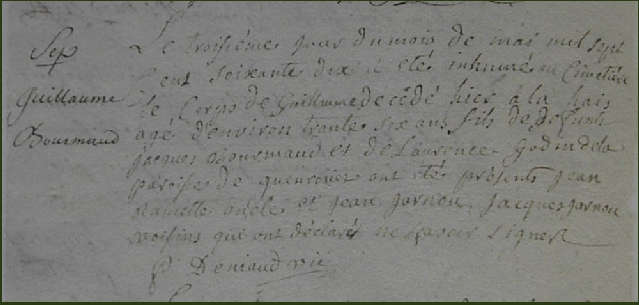 Sep
Guillaume
Bourmaud
Le troisième jour du mois de mai mil sept
cent soixante dix a eté inhumé au Cimetière
le Corps de Guillaume decedé hier à la hais
age d'environ trente six ans fils de defunt
jacques Bourmaud et de Laurence godin de la
paroisse de guenrouet ont eté présents jean
oncle et jean garnou, jacques garnou
voisins qui ont déclaré ne sçavoir signer
P Deniaud vic